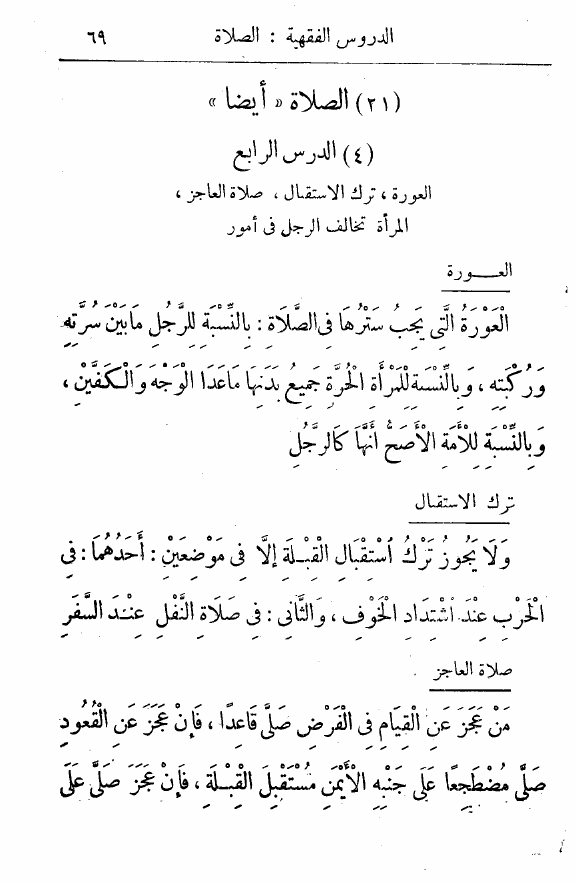 الدروس الفقهية : الصلاة ٦٩
(٢١) الصلاة « أيضا »
(٤) الدرس الرابع
العورة ، ترك الاستقبال ، صلاة العاجز ،
المرأة تخالف الرجل فى أمور
العـــورة
الْعَوْرَةُ الَّتِى يَجِبُ سَتْرُهَا فِى الصَّلَاةِ : بِالنِّسْبَةِ لِلرَّجُلِ مَا بَيْنَ سُرَّتِهِ
وَرُكْبَتِهِ ، وَبِالنِّسْبَةِ لِلْمَرْأَةِ الْحُرَّةِ جَمِيعُ بَدَنِهَا مَاعَدَا الْوَجْهَ وَالْكَفَّيْنِ ،
وَبِالنِّسْبَةِ لِلْأَمَةِ الْأَصَحُّ أَنَّهَا كَالرَّجُلِ
ترك الاستقبال
وَلَا يَجُوزُ تَرْكُ اسْتِقْبَالِ الْقِبْـلَةِ إِلَّا فِى مَوْضِعَيْنِ : أَحَدُهُمَا : فِى
الْحَرْبِ عِنْدَ اشْتِدَادِ الْخَوْفِ ، وَالثَّانِى : فِى صَلَاةِ النَّفْلِ عِنْـدَ السَّفَرِ
صلاة العاجز
مَنْ عَجَزَ عَنِ الْقِيَامِ فِى الْفَرْضِ صَلَّى قَاعِدًا ، فَإِنْ عَجَزَ عَنِ الْقُعُودِ
صَلَّى مُضْطَجِعًا عَلَى جَنْبِهِ الْأَيْمَنِ مُسْتَقْبِلَ الْقِبْـلَةِ ، فَإِنْ عَجَزَ صَلَّى عَلَى